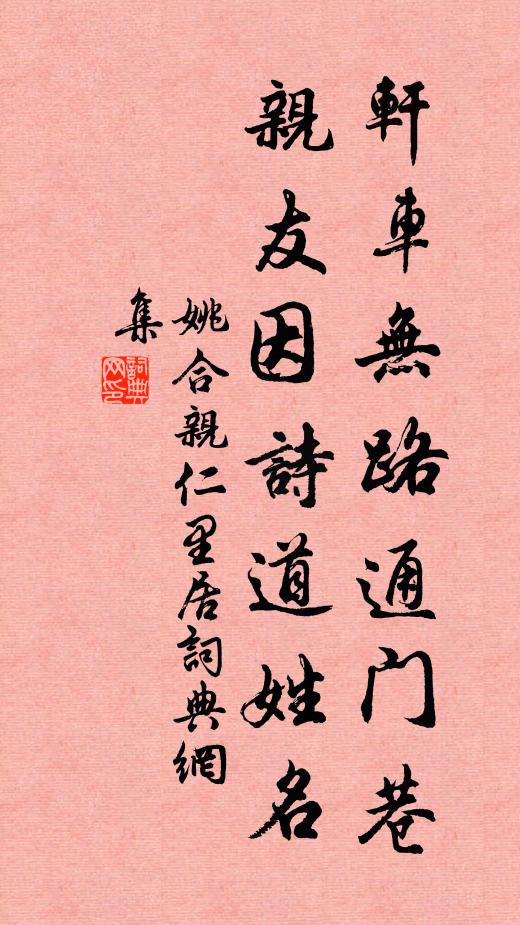 軒車無路通門巷
親友因詩道姓名
姚合親仁里居詞典網
集
詞典
网印